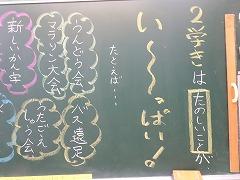 2学きは
たのしいことが
い〜っぱい!
たとえば…
うんどう会
バス遠足
マラソン大会
うたごえしゅう会
新しいかん字